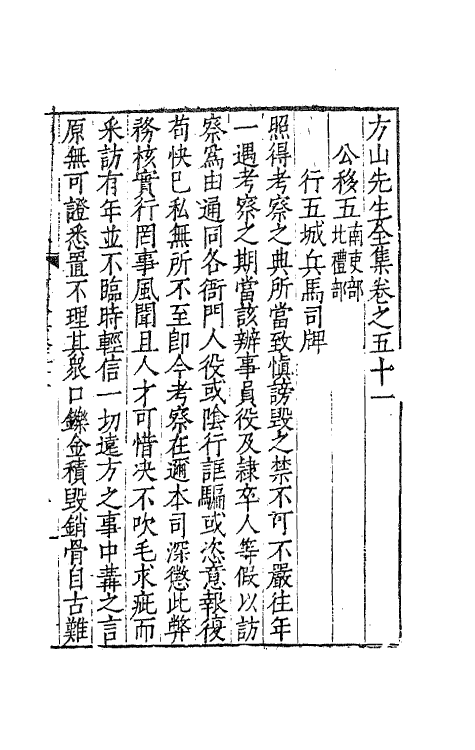 方山先生全集卷之五十一
公移五南吏部北禮部
行五城兵馬司牌
照得考察之典所當致愼謗毀之禁不可不嚴往年
一遇考察之期當該辦事員役及隷卒人等假以訪
察爲由通同各衙門人役或陰行誆騙或恣意報復
苟快巳私無所不至卽今考察在邇本司深懲此弊
務核實行罔事風聞且人才可惜决不吹毛求疵而
采訪有年並不臨時輕信一切遠方之事中冓之言
原無可證悉置不理其衆口鑠金積毀銷骨自古難